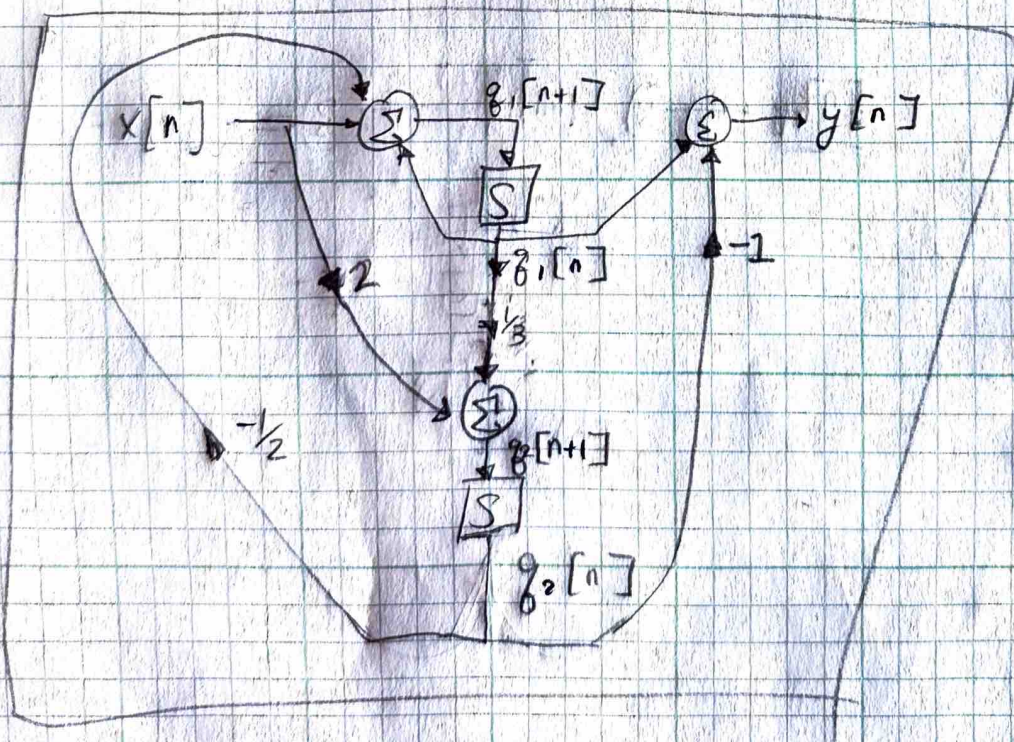 x[n]
Σ
q₁[n+1]
Σ
y[n]
S
q₁[n]
-1
2
1/3
Σ
-1/2
q₂[n+1]
S
q₂[n]